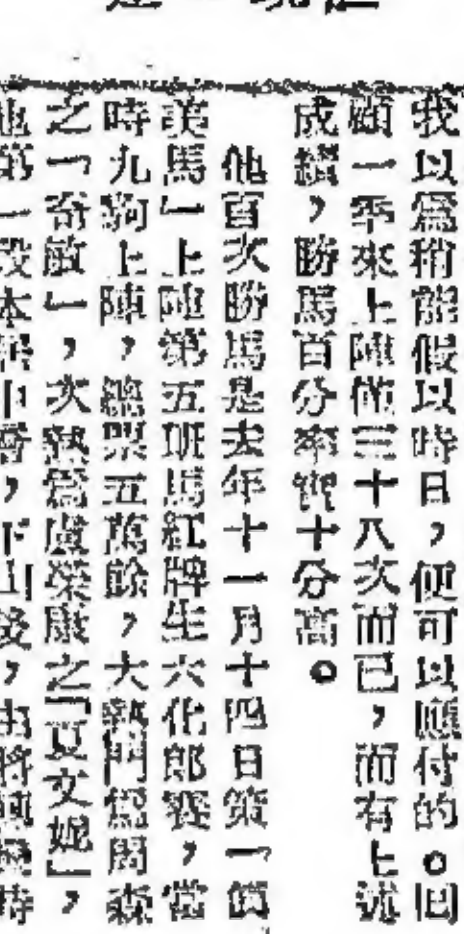 我以為稍能假以時日，便可以應付的。回
顧一季來上陣僅三十八次而已，而有上述
成績，勝馬百分率實十分高。
他首次勝馬是去年十一月十四日策「價
美馬」上陣第五班馬紅牌生六化郎賽，當
時九駒上陣，總票五萬餘，大熱門為周森
之「奇敏」，次熱為盧榮康之「夏文妮」，
他第一段本